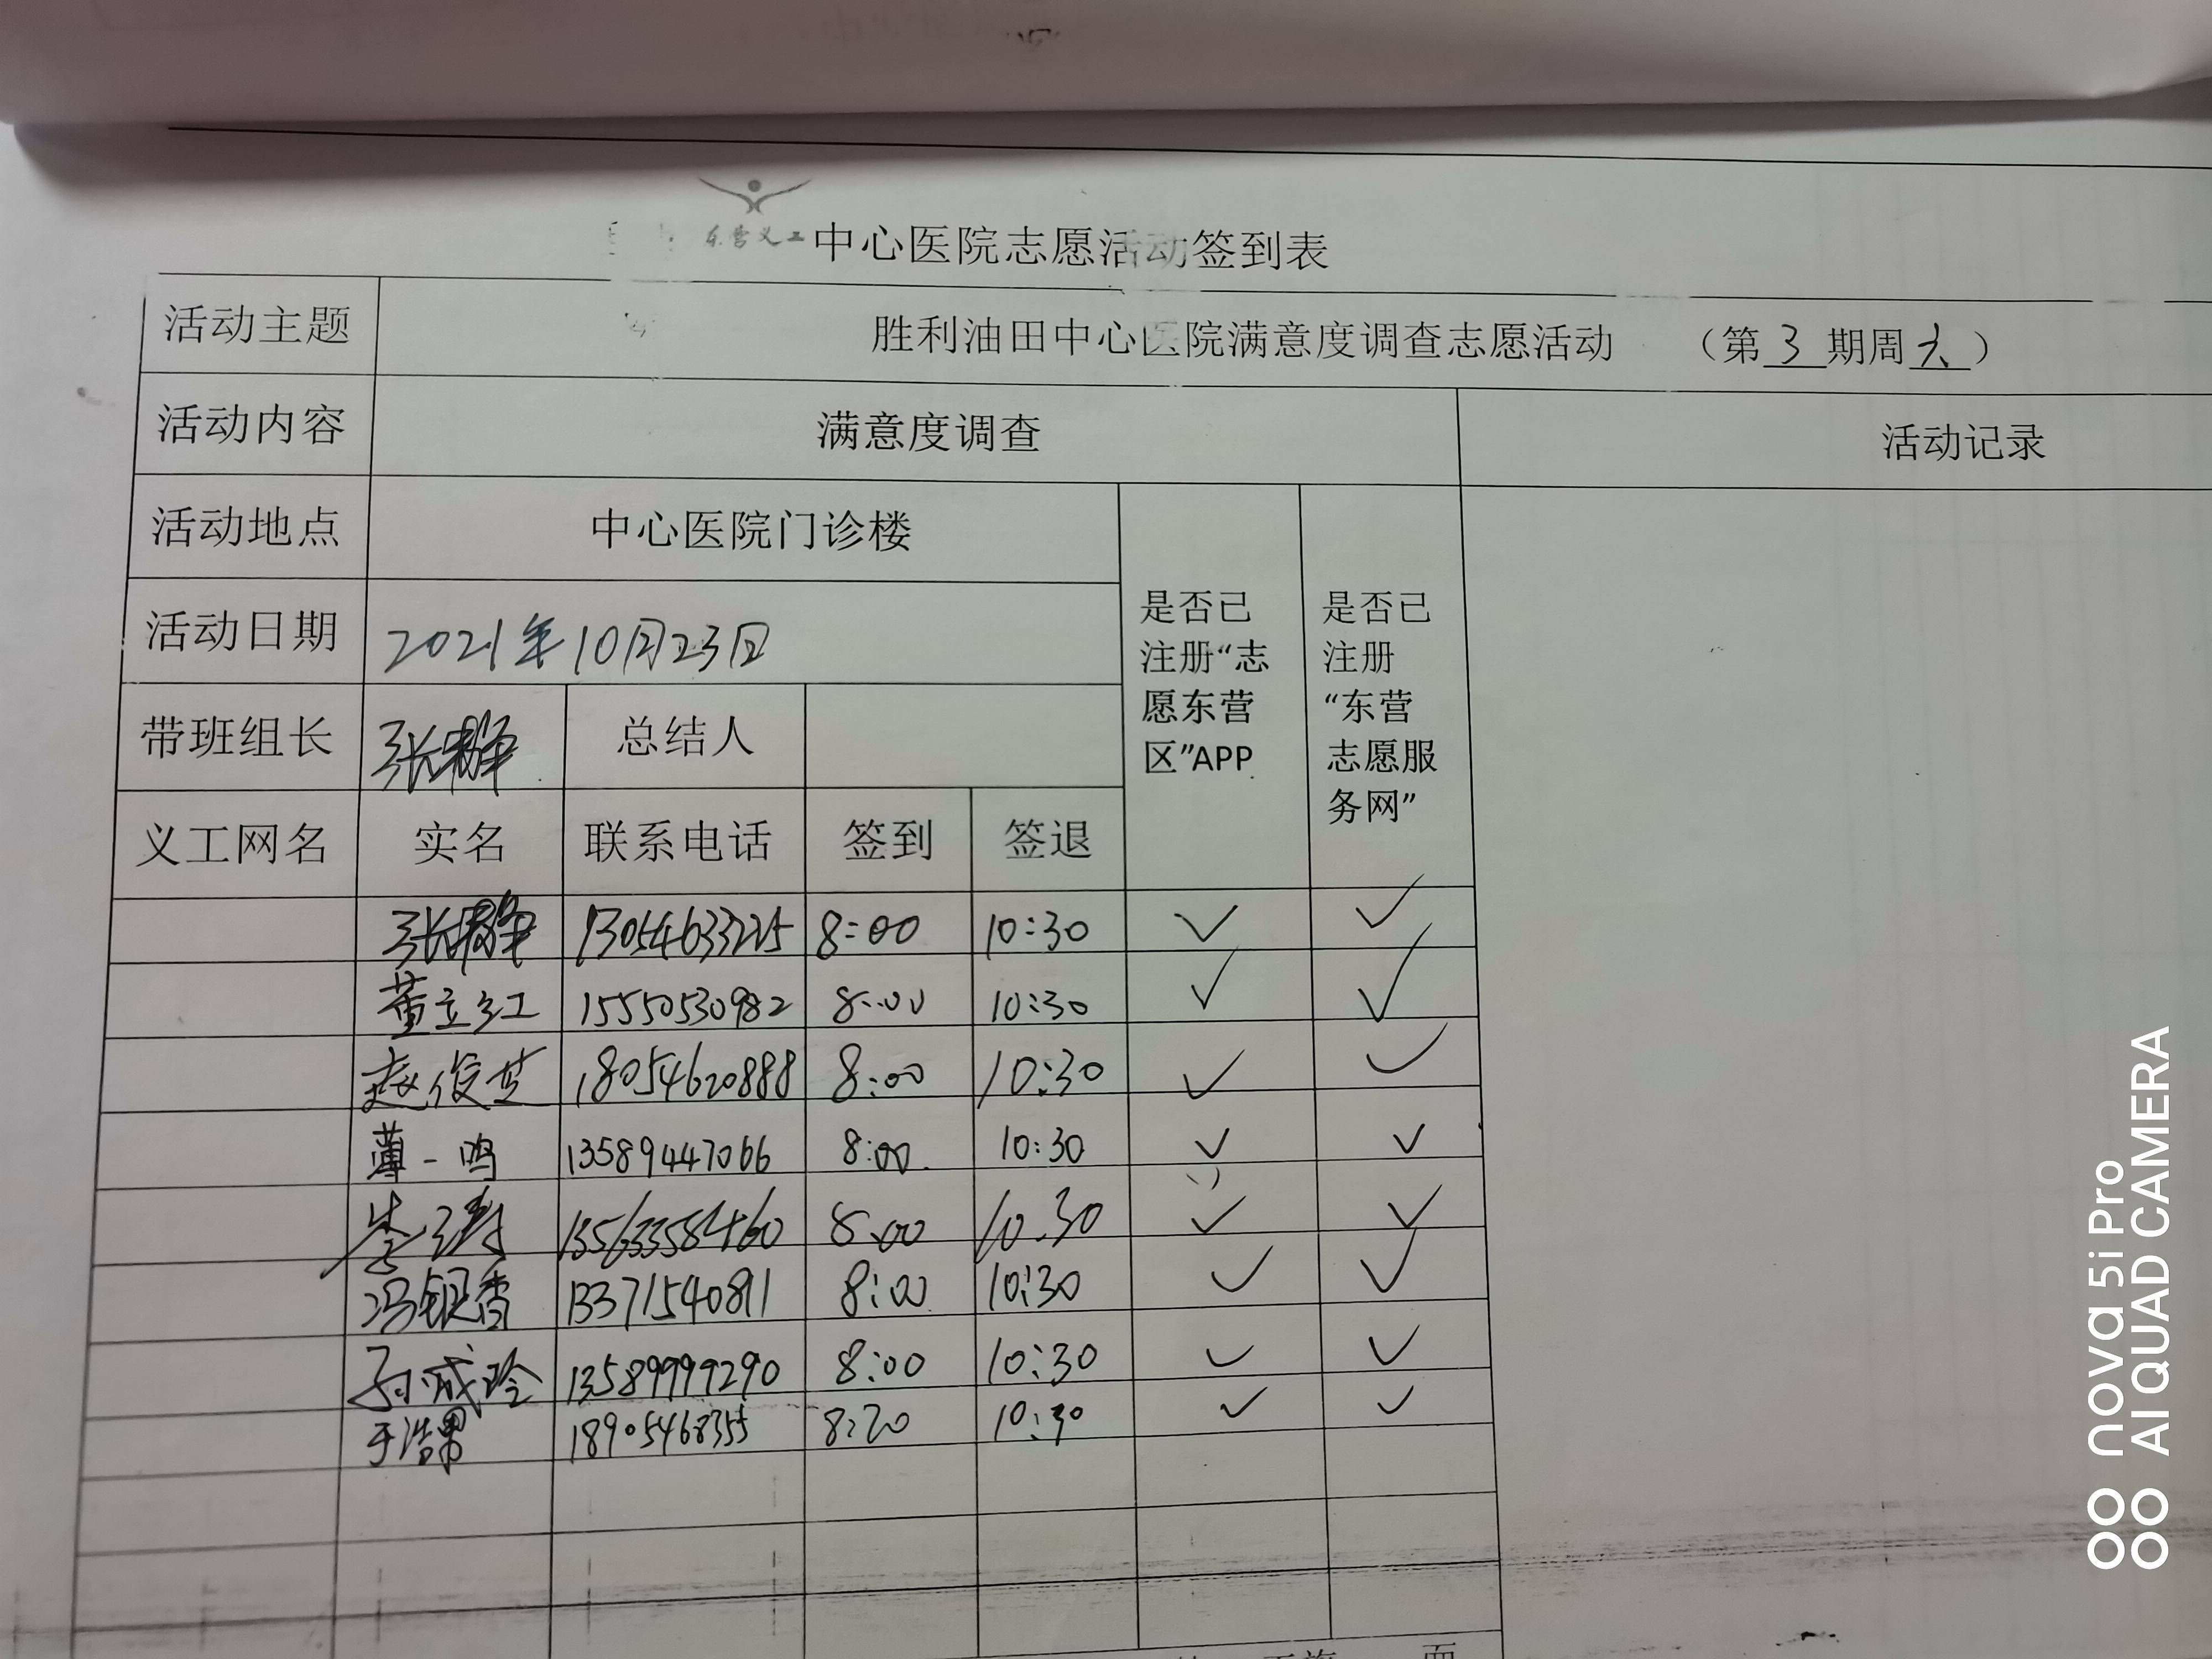 东营义工 中心医院志愿活动签到表
活动主题 胜利油田中心医院满意度调查志愿活动 （第3期周六）
活动内容 满意度调查 活动记录
活动地点 中心医院门诊楼 是否已注册“志愿东营区”APP 是否已注册“东营志愿服务网”
活动日期 2021年10月23日
带班组长 张 总结人
义工网名 实名 联系电话 签到 签退
张 13054633225 8:00 10:30 ✓ ✓
董立红 15550530982 8:00 10:30 ✓ ✓
赵俊芝 18054620888 8:00 10:30 ✓ ✓
薄一鸣 13589447066 8:00 10:30 ✓ ✓
李 13563358460 8:00 10:30 ✓ ✓
冯银香 13371540811 8:00 10:30 ✓ ✓
孙成玲 13589999290 8:00 10:30 ✓ ✓
于浩男 18905468355 8:20 10:30 ✓ ✓
nova 5i Pro
AI QUAD CAMERA